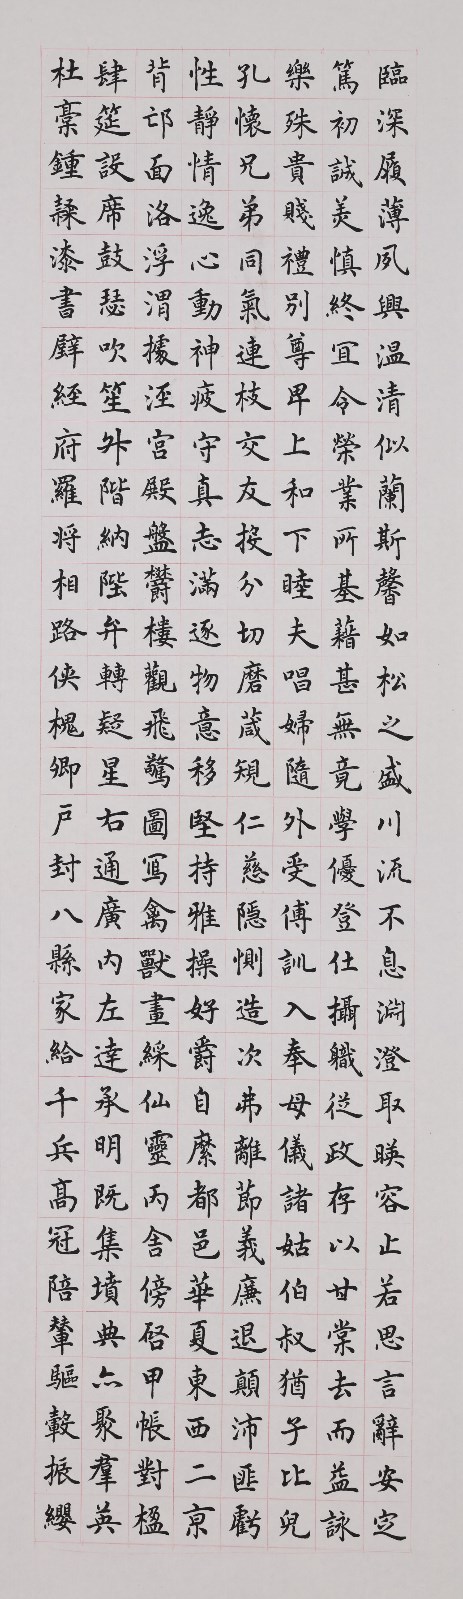 臨深履薄夙興温清似蘭斯馨如松之盛川流不息淵澄取暎容止若思言辭安定
篤初誠美慎終宜令榮業所基藉甚無竟學優登仕攝職從政存以甘棠去而益詠
樂殊貴賤禮別尊卑上和下睦夫唱婦隨外受傅訓入奉母儀諸姑伯叔猶子比兒
孔懷兄弟同氣連枝交友投分切磨箴規仁慈隱惻造次弗離節義廉退顛沛匪虧
性靜情逸心動神疲守真志滿逐物意移堅持雅操好爵自縻都邑華夏東西二京
背邙面洛浮渭據涇宮殿盤鬱樓觀飛驚圖寫禽獸畫綵仙靈丙舍傍啓甲帳對楹
肆筵設席鼓瑟吹笙升階納陛弁轉疑星右通廣內左達承明既集墳典亦聚羣英
杜稾鍾隸漆書壁經府羅將相路俠槐卿戶封八縣家給千兵高冠陪輦驅轂振纓